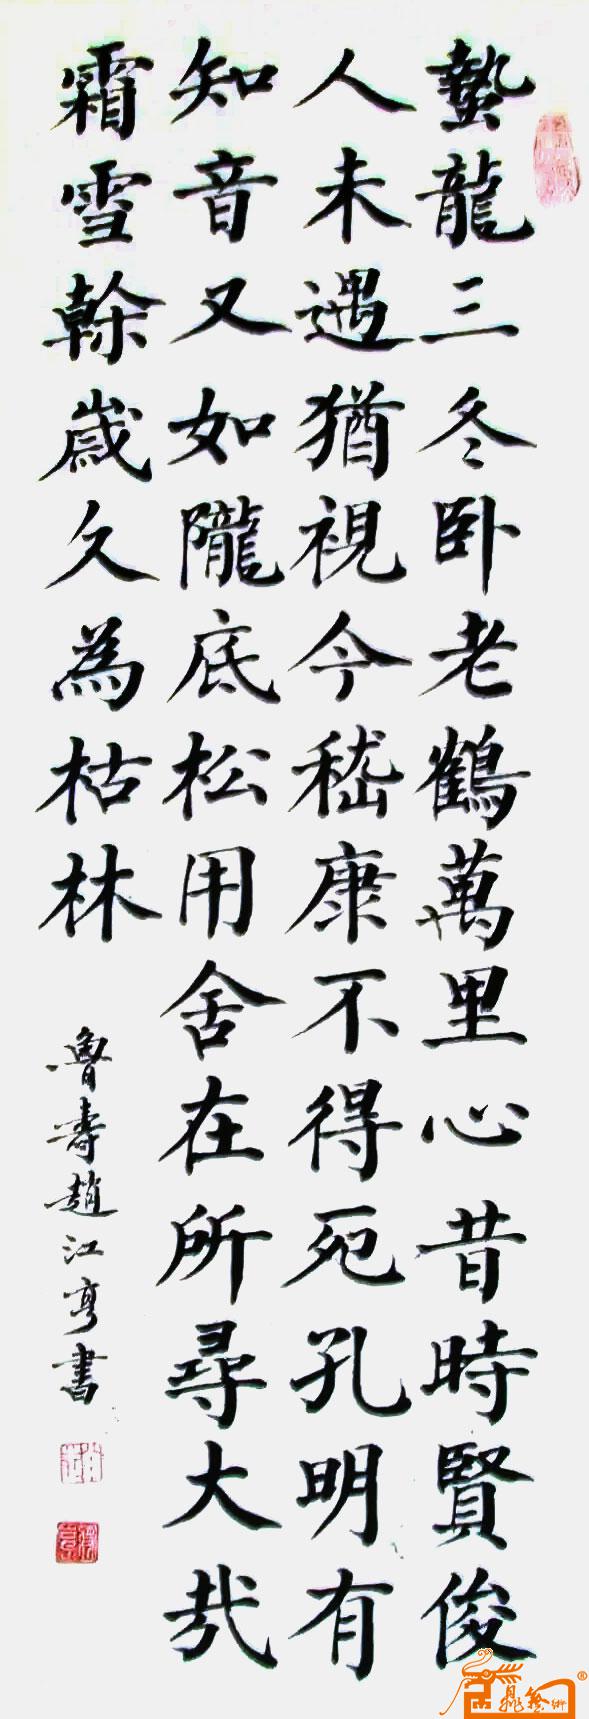 蟄龍三冬卧老鶴萬里心昔時賢俊
人未遇猶視今嵇康不得死孔明有
知音又如隴底松用舍在所尋大哉
霜雪幹歲久為枯林
魯壽趙江亨書